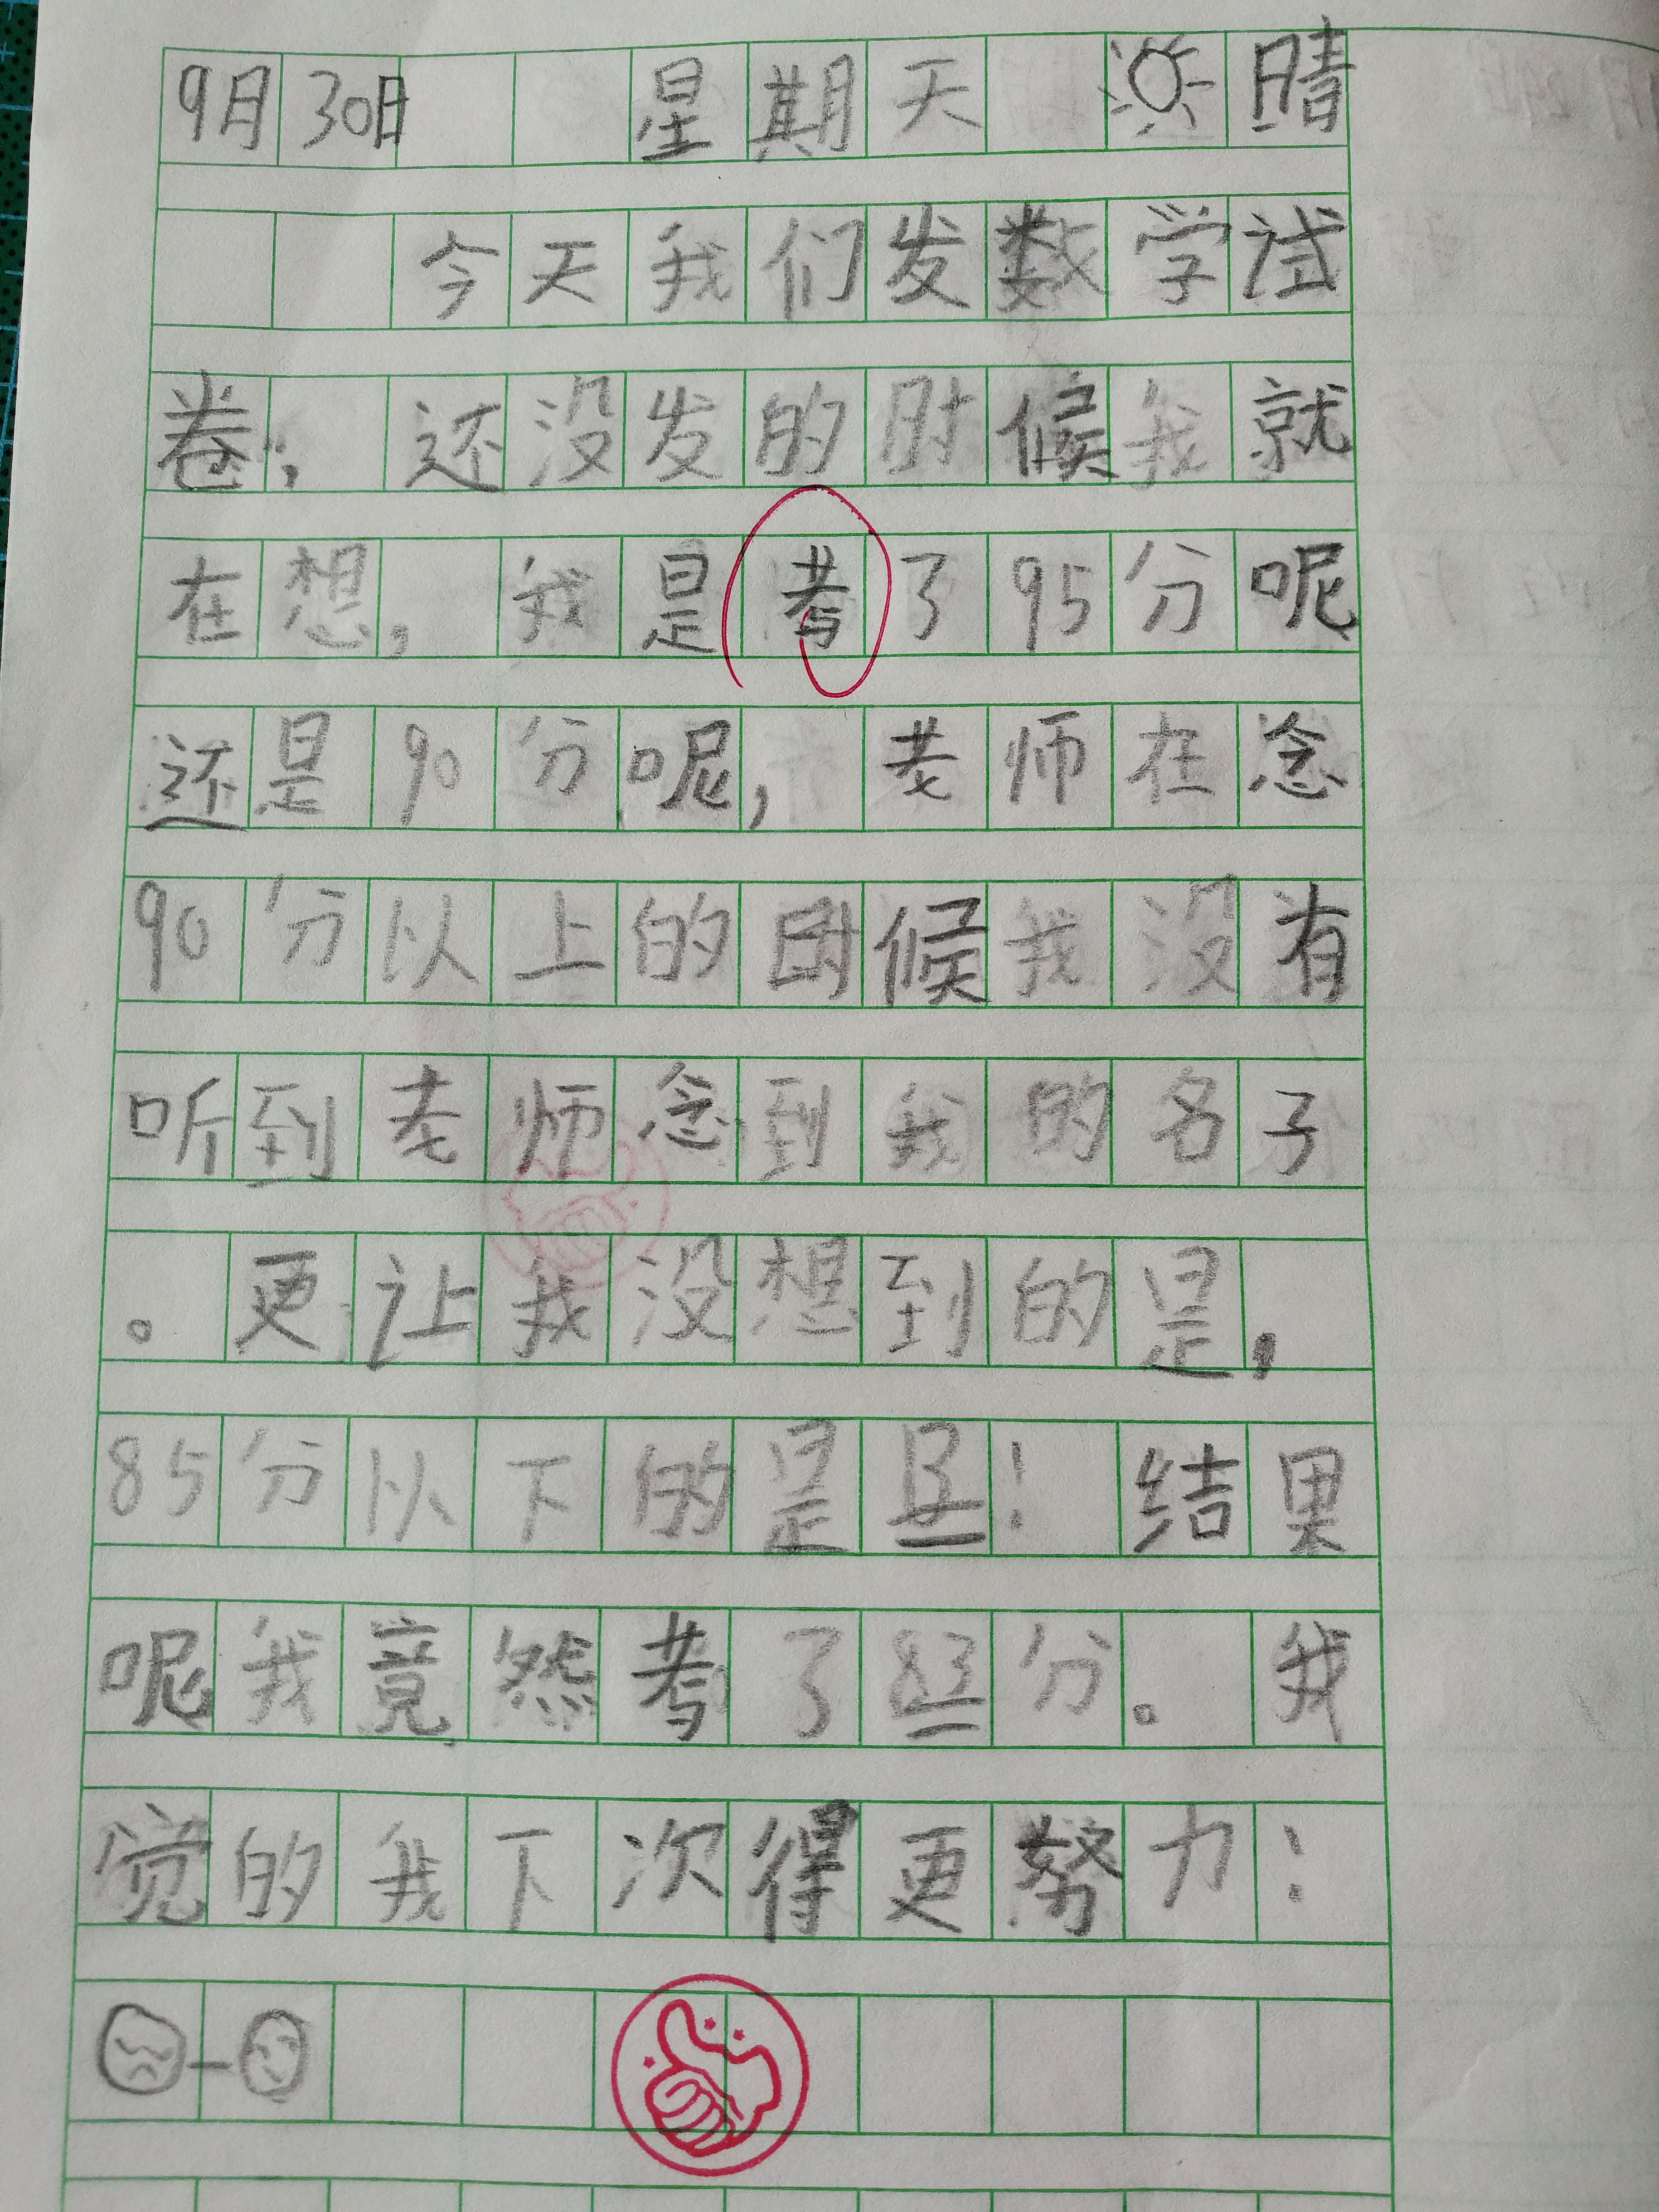 9月30日 星期天 晴
今天我们发数学试
卷，还没发的时候我就
在想，我是考了95分呢
还是90分呢，老师在念
90分以上的时候我没有
听到老师念到我的名子
。更让我没想到的是，
85分以下的是B！结果
呢我竟然考了83分。我
觉的我下次得更努力！